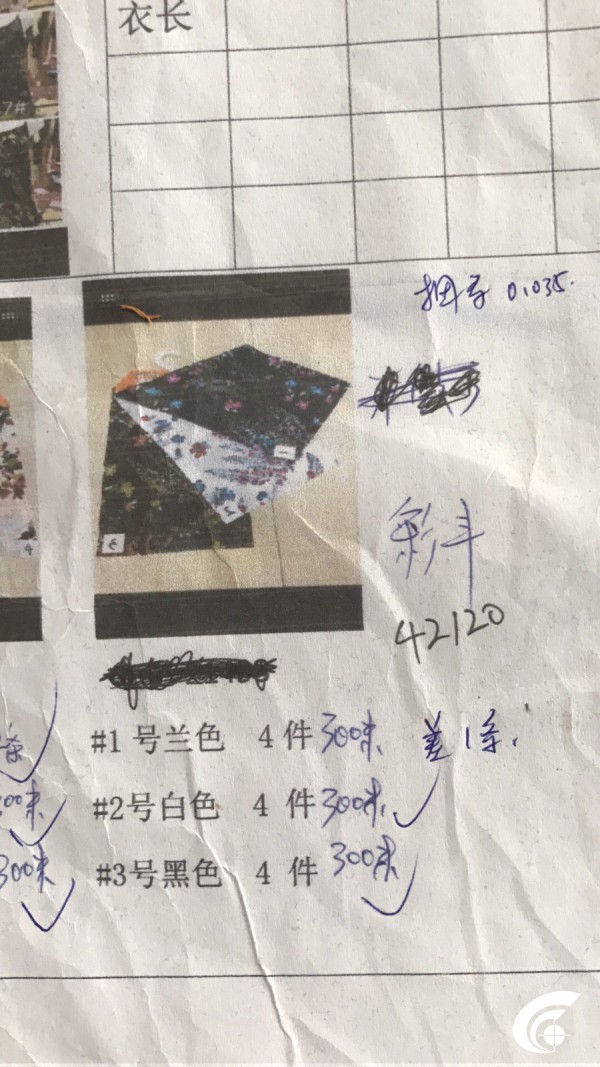 衣长
7#
捆子 0.035.
彩斗
42120
#1号兰色 4件 300米 差1条.
#2号白色 4件 300米
#3号黑色 4件 300米
300米